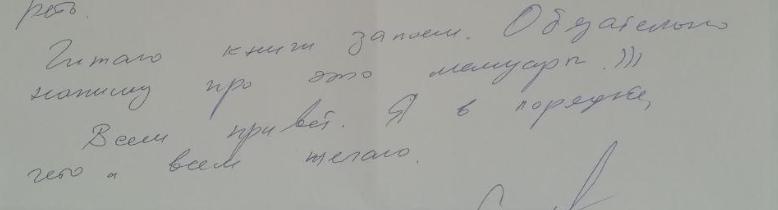 реть.
Читаю книги запоем. Обязательно
напишу про это мемуары.)))
Всем привет. Я в порядке,
чего и всем желаю.